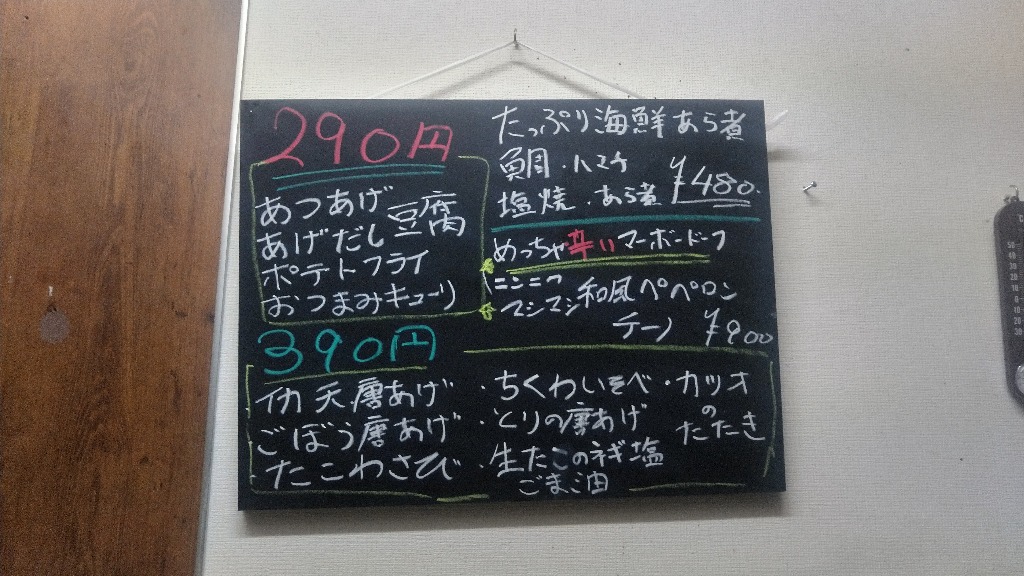 290円
あつあげ
あげだし豆腐
ポテトフライ
おつまみキューリ
たっぷり海鮮あら煮
鯛・ハマチ
塩焼・あら煮 ¥480.
めっちゃ辛いマーボードーフ
ニンニク
マシマシ和風ペペロン
チーノ ¥900
390円
イカ天唐あげ
ごぼう唐あげ
たこわさび
・ちくわいそべ
・とりの唐あげ
・生たこのネギ塩
ごま油
・カツオ
の
たたき
50
40
30
20
10
0
10
20
30